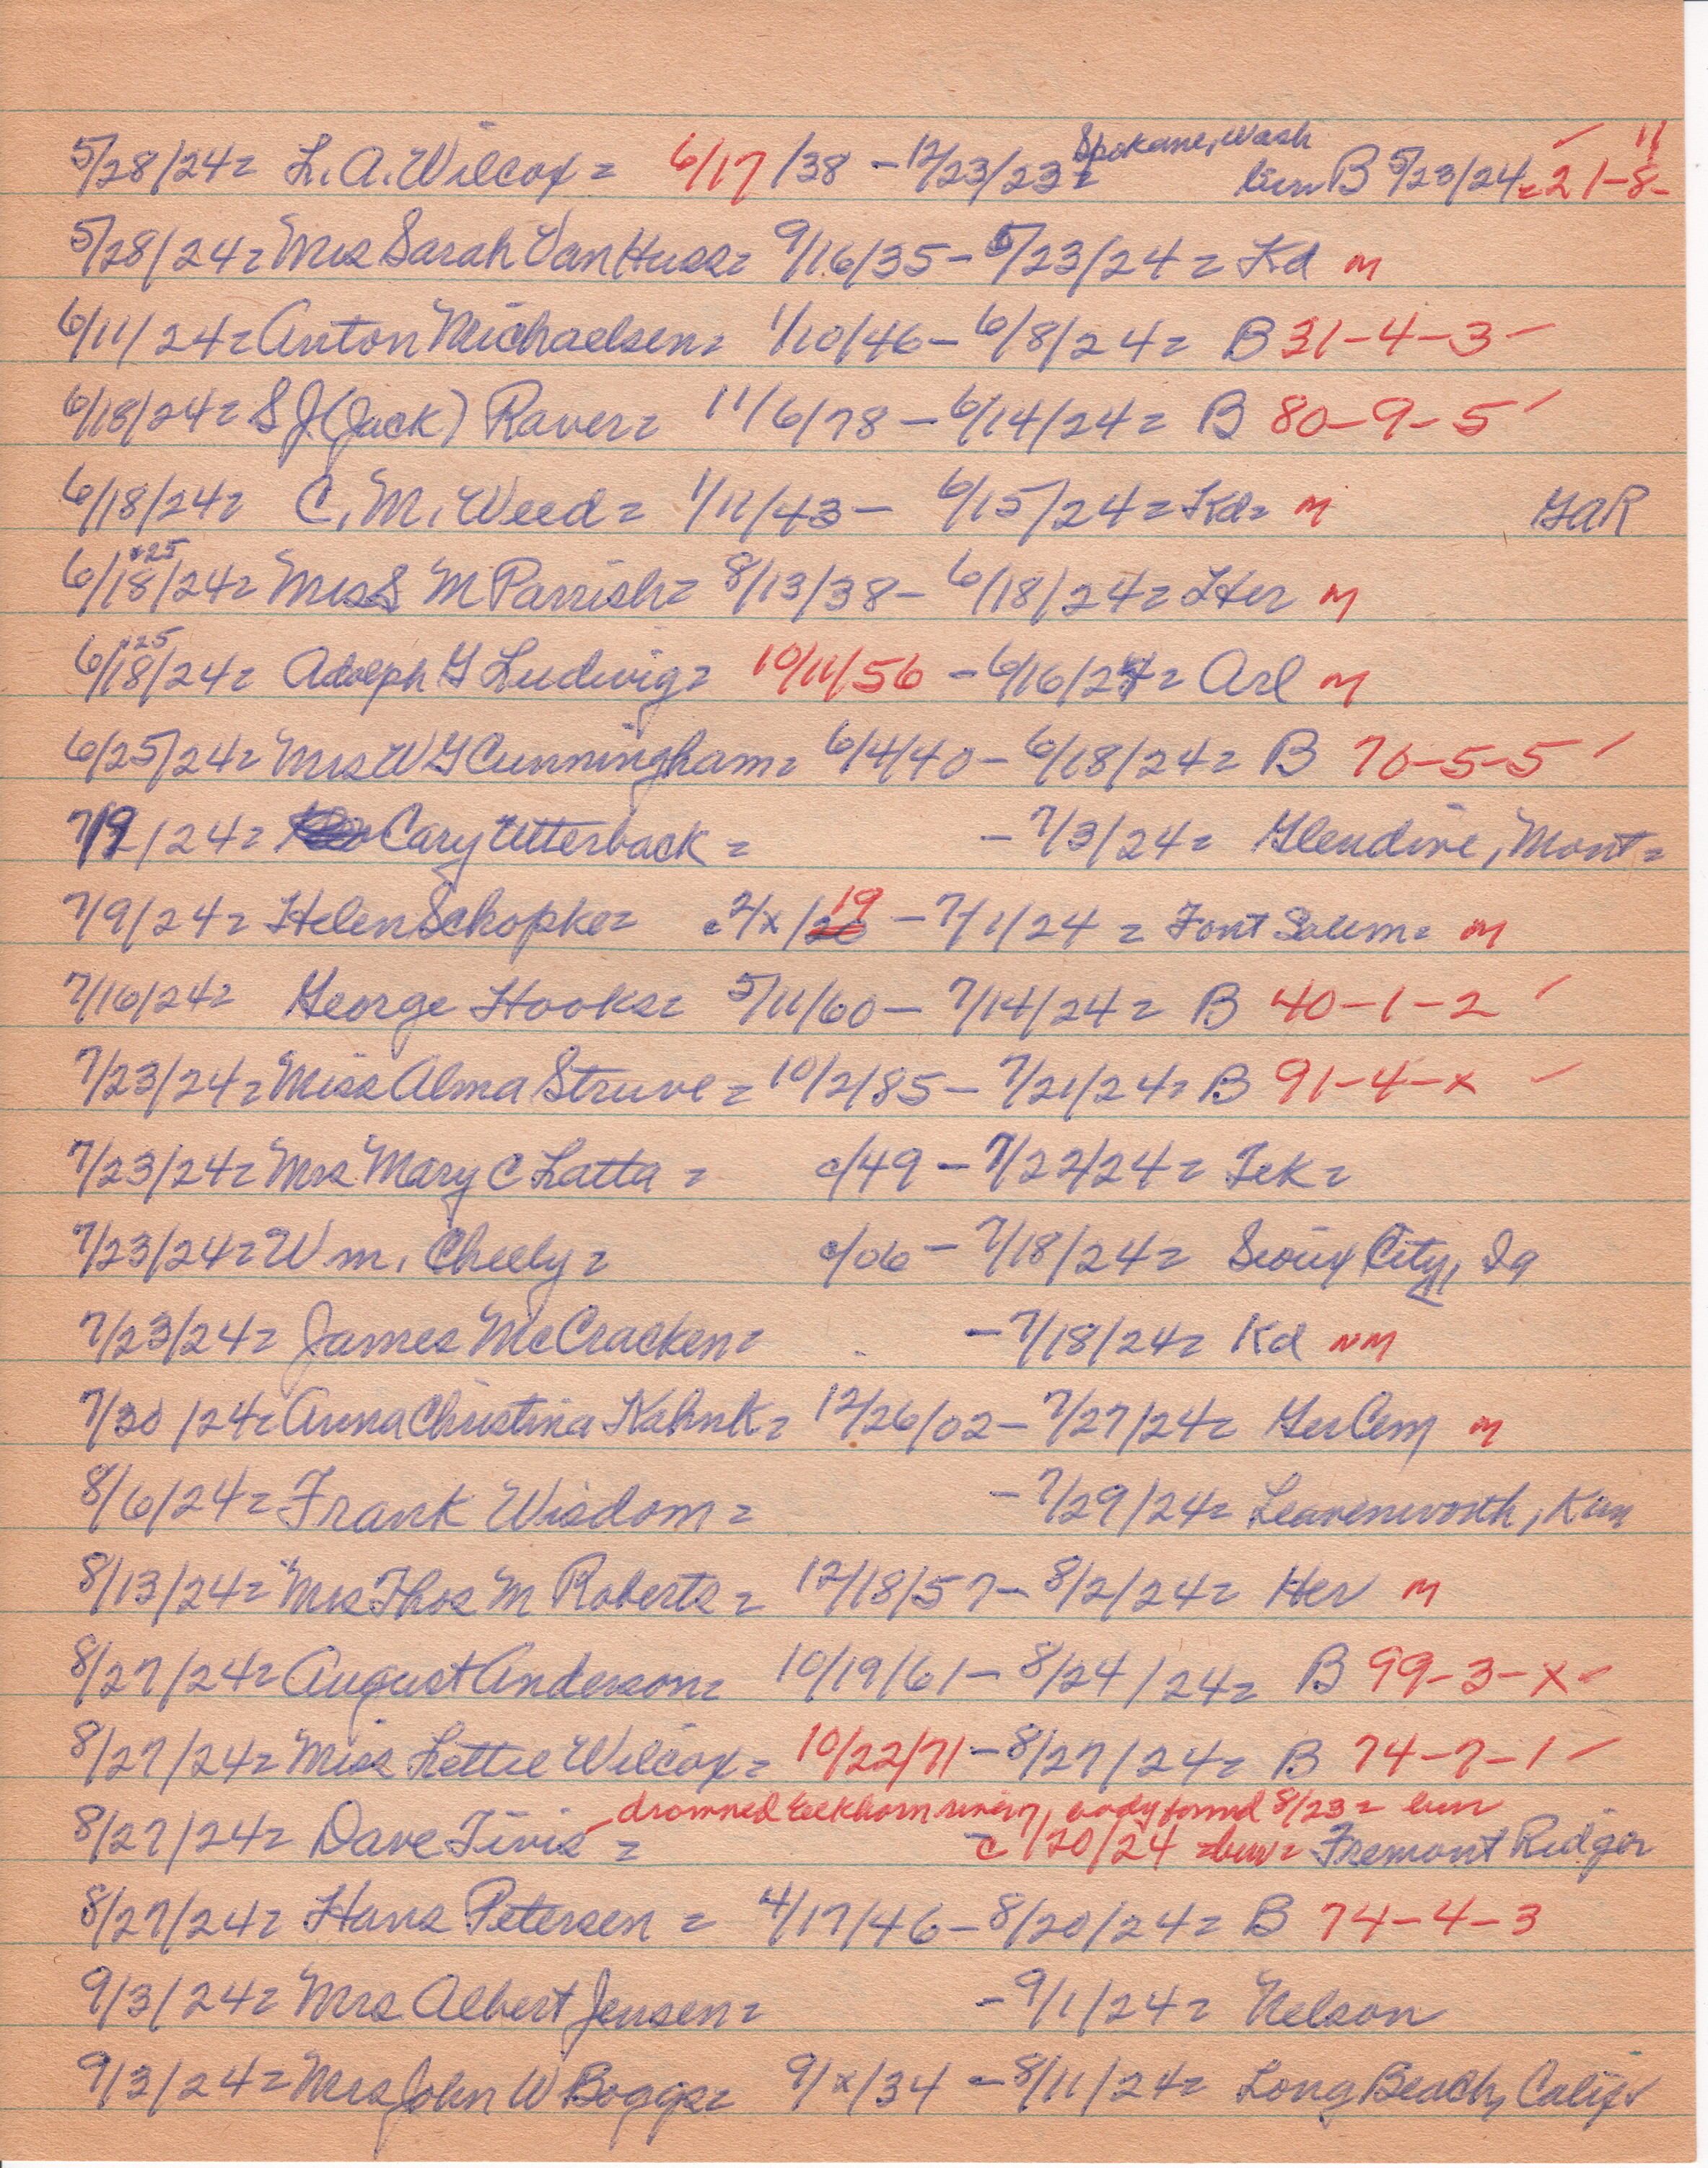 5/28/24= L. A. Wilcox = 6/17/38 - 12/23/23 = Spokane, Wash bur B 5/23/24 = 21-8-11 ✓
5/28/24 = Mrs Sarah Van Huss = 9/16/35 - 5/23/24 = Kd M
6/11/24 = Anton Michaelsen = 1/10/46 - 6/8/24 = B 31-4-3 ✓
6/18/24 = S J. (Jack) Raver = 11/6/78 - 6/14/24 = B 80-9-5 ✓
6/18/24 = C. M. Weed = 1/11/43 - 6/15/24 = Kd = M GAR
6/18 & 25/24 = Mrs S M Parrish = 8/13/38 - 6/18/24 = Her M
6/18 & 25/24 = Adolph G Ludwig = 10/11/56 - 6/16/24 = Arl M
6/25/24 = Mrs W G Cunningham = 6/4/40 - 6/18/24 = B 70-5-5 ✓
7/9/24 = Cary Utterback = - 7/3/24 = Glendive, Mont =
7/9/24 = Helen Schopke = c 2/x/20 19 - 7/1/24 = Font = M
7/16/24 = George Hooks = 5/11/60 - 7/14/24 = B 40-1-2 ✓
7/23/24 = Miss Alma Struve = 10/2/85 - 7/21/24 = B 91-4-x ✓
7/23/24 = Mrs Mary C Latta = c/49 - 7/22/24 = Tek =
7/23/24 = Wm. Cheely = c/06 - 7/18/24 = Sioux City, Ia
7/23/24 = James McCracken = - 7/18/24 = Kd NM
7/30/24 = Anna Christina Kahnk = 12/26/02 - 7/27/24 = Ger Cem M
8/6/24 = Frank Wisdom = - 7/29/24 = Leavenworth, Kan
8/13/24 = Mrs Thos M Roberts = 12/18/57 - 8/2/24 = Her M
8/27/24 = August Anderson = 10/19/61 - 8/24/24 = B 99-3-x ✓
8/27/24 = Miss Lettie Wilcox = 10/22/71 - 8/27/24 = B 74-7-1 ✓
drowned Elkhorn river, body found 8/23 = bur
8/27/24 = Dave Tivis = - c 7/20/24 = bur = Fremont Ridge
8/27/24 = Hans Petersen = 4/17/46 - 8/20/24 = B 74-4-3
9/3/24 = Mrs Albert Jensen = - 9/1/24 = Nelson
9/3/24 = Mrs John W Boggs = 9/x/34 - 8/11/24 = Long Beach, Calif